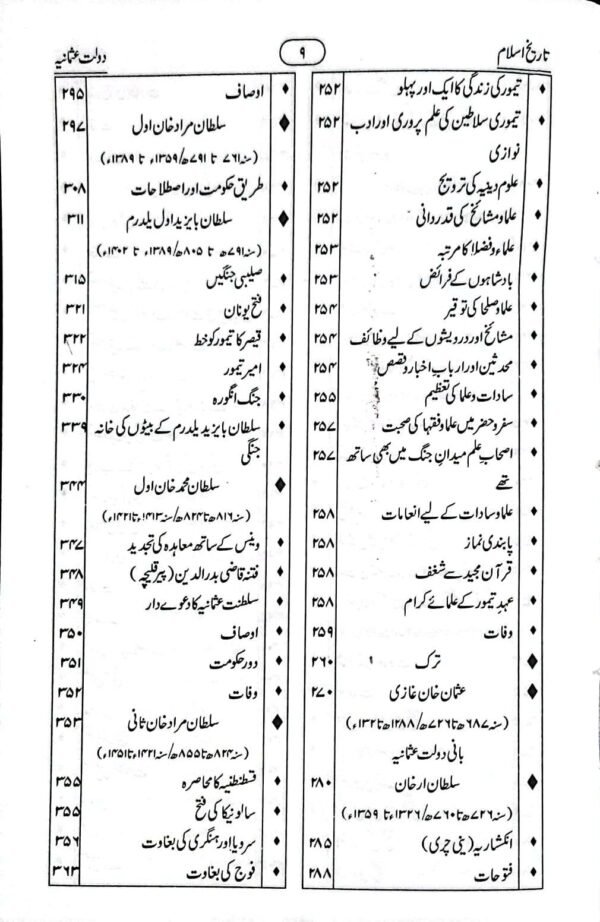 تاریخ اسلام
۹
دولت عثمانیہ
♦ تیمور کی زندگی کا ایک اور پہلو ۲۵۲
♦ تیموری سلاطین کی علم پروری اور ادب ۲۵۲
نوازی
♦ علوم دینیہ کی ترویج ۲۵۲
♦ علما و مشائخ کی قدردانی ۲۵۲
♦ علماء و فضلا کا مرتبہ ۲۵۳
♦ بادشاہوں کے فرائض ۲۵۳
♦ علما و صلحا کی توقیر ۲۵۴
♦ مشائخ اور درویشوں کے لیے وظائف ۲۵۴
♦ محدثین اور ارباب اخبار و قصص ۲۵۴
♦ سادات و علما کی تعظیم ۲۵۵
♦ سفر و حضر میں علما و فقہا کی صحبت ۲۵۷
♦ اصحابِ علم میدانِ جنگ میں بھی ساتھ ۲۵۷
تھے
♦ علما و سادات کے لیے انعامات ۲۵۸
♦ پابندی نماز ۲۵۸
♦ قرآن مجید سے شغف ۲۵۸
♦ عہدِ تیمور کے علمائے کرام ۲۵۸
♦ وفات ۲۵۹
♦ ترک ۲۶۰
♦ عثمان خان غازی ۲۷۰
(سنہ ۶۸۷ھ تا ۷۲۶ھ/۱۲۸۸ھ تا ۱۳۲۶ء)
بانی دولت عثمانیہ
♦ سلطان ارخان ۲۸۰
(سنہ ۷۲۶ھ تا ۷۶۰ھ/۱۳۲۶ء تا ۱۳۵۹ء)
♦ انکشاریہ (ینی چری) ۲۸۵
♦ فتوحات ۲۸۸
♦ اوصاف ۲۹۵
♦ سلطان مراد خان اول ۲۹۷
(سنہ ۷۶۱ھ تا ۷۹۱ھ/۱۳۵۹ء تا ۱۳۸۹ء)
♦ طریق حکومت اور اصطلاحات ۳۰۸
♦ سلطان بایزید اول یلدرم ۳۱۱
(سنہ ۷۹۱ھ تا ۸۰۵ھ/۱۳۸۹ء تا ۱۴۰۲ء)
♦ صلیبی جنگیں ۳۱۵
♦ فتح یونان ۳۲۱
♦ قیصر کا تیمور کو خط ۳۲۲
♦ امیر تیمور ۳۲۴
♦ جنگ انگورہ ۳۳۰
♦ سلطان بایزید یلدرم کے بیٹوں کی خانہ ۳۳۹
جنگی
♦ سلطان محمد خان اول ۳۴۴
(سنہ ۸۱۶ھ تا ۸۲۴ھ/سنہ ۱۴۱۳ء تا ۱۴۲۱ء)
♦ وینس کے ساتھ معاہدہ کی تجدید ۳۴۷
♦ فتنہ قاضی بدرالدین (پیر قلیچہ) ۳۴۸
♦ سلطنت عثمانیہ کا دعوے دار ۳۴۹
♦ اوصاف ۳۵۰
♦ دور حکومت ۳۵۱
♦ وفات ۳۵۲
♦ سلطان مراد خان ثانی ۳۵۳
(سنہ ۸۲۴ھ تا ۸۵۵ھ/سنہ ۱۴۲۱ء تا ۱۴۵۱ء)
♦ قسطنطنیہ کا محاصرہ ۳۵۵
♦ سالونیکا کی فتح ۳۵۵
♦ سرویا اور ہنگری کی بغاوت ۳۵۶
♦ فوج کی بغاوت ۳۶۳